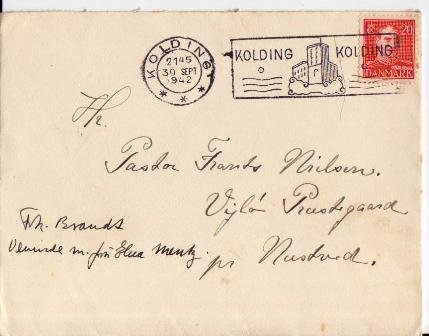 KOLDING
2145
30 SEPT
1942
KOLDING KOLDING
20
DANMARK
Hr.
Pastor Frants Nielsen.
Vejlø Præstegaard
pr Næstved.
Fr. Brandt
m. frk Elna Mentz.